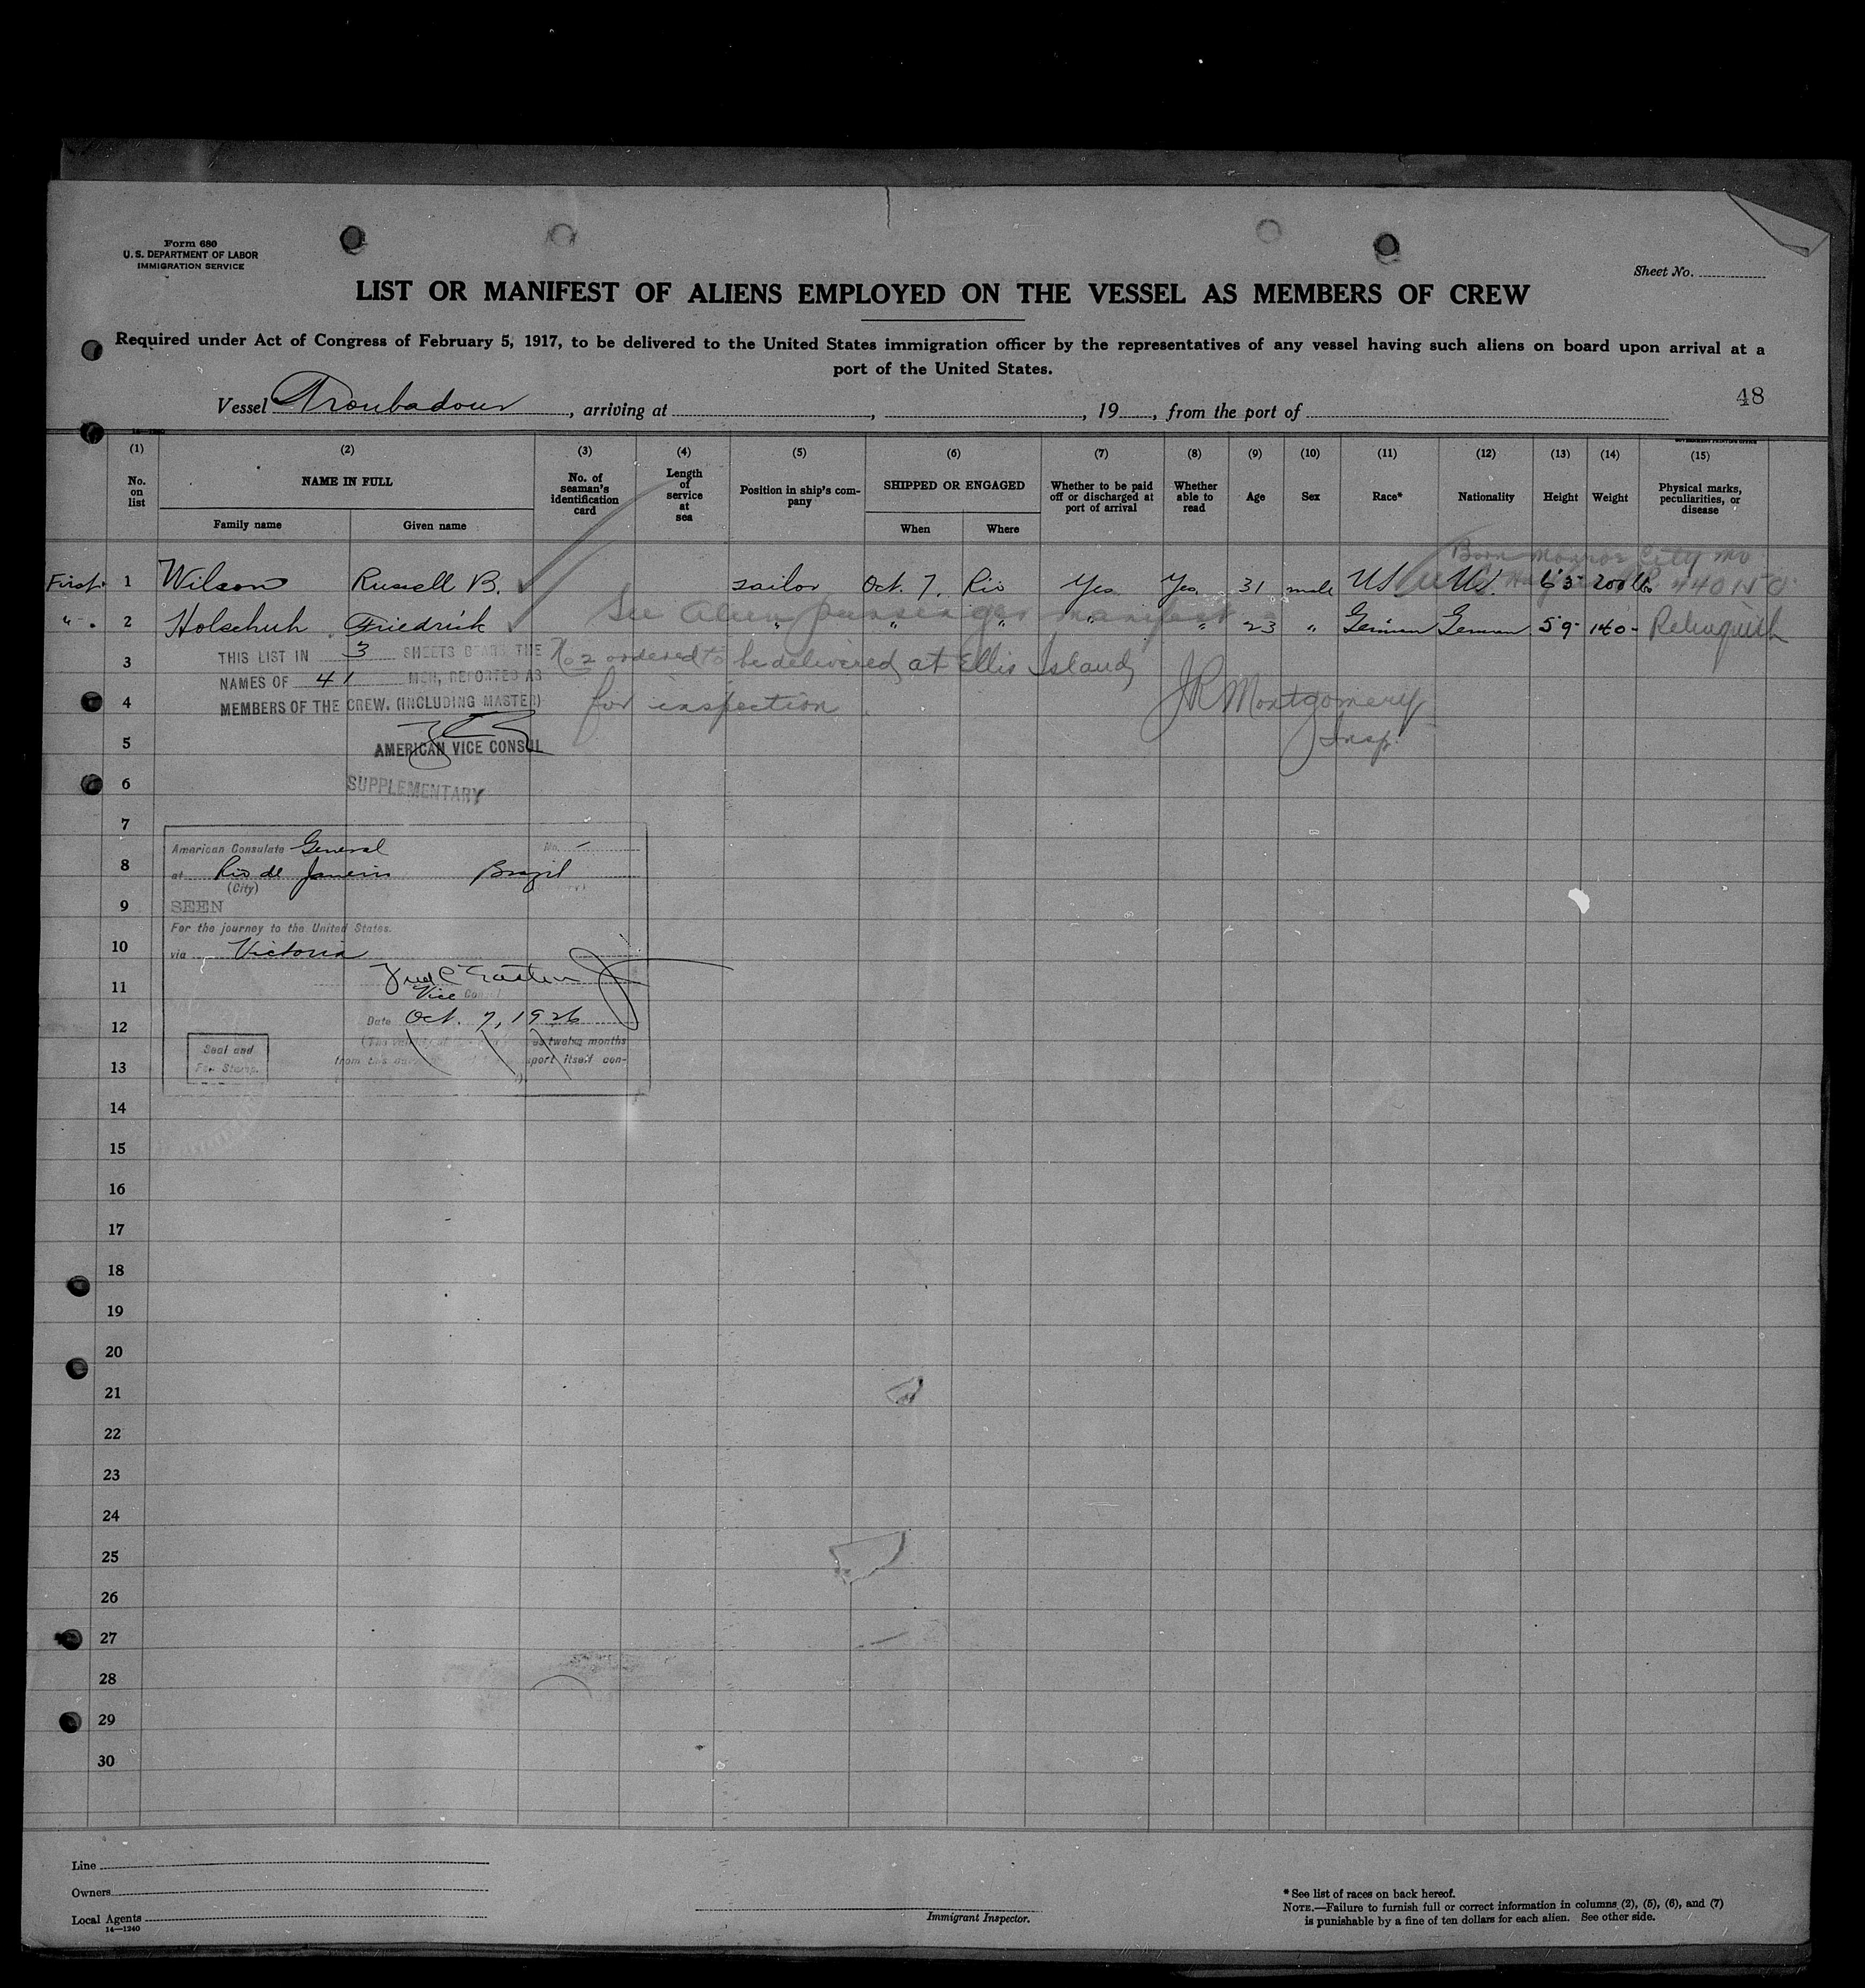 Form 680
U. S. DEPARTMENT OF LABOR
IMMIGRATION SERVICE
Sheet No.
LIST OR MANIFEST OF ALIENS EMPLOYED ON THE VESSEL AS MEMBERS OF CREW
Required under Act of Congress of February 5, 1917, to be delivered to the United States immigration officer by the representatives of any vessel having such aliens on board upon arrival at a
port of the United States.
Vessel Troubadour, arriving at , , 19 , from the port of
48
(1) (2) (3) (4) (5) (6) (7) (8) (9) (10) (11) (12) (13) (14) (15)
No. on list
NAME IN FULL
Family name Given name
No. of seaman's identification card
Length of service at sea
Position in ship's company
SHIPPED OR ENGAGED
When Where
Whether to be paid off or discharged at port of arrival
Whether able to read
Age
Sex
Race*
Nationality
Height
Weight
Physical marks, peculiarities, or disease
Born Monroe City Mo
First 1 Wilson Russell B. sailor Oct. 7. Rio Yes Yes 31 male US US. 6'3" 200 lbs 440150
" 2 Holschuh Friedrick " " " " " 23 " German German 5'9" 140- Relinquish
See Alien passenger manifest
3 THIS LIST IN 3 SHEETS BEARS THE
No 2 ordered to be delivered at Ellis Island
NAMES OF 41 MEN, REPORTED AS
4 MEMBERS OF THE CREW. (INCLUDING MASTER)
for inspection.
J R Montgomery
Insp.
5 AMERICAN VICE CONSUL
6 SUPPLEMENTARY
7
American Consulate General No.
8 at Rio de Janeiro Brazil
(City)
9 SEEN
For the journey to the United States.
10 via Victoria
11 Vice Consul
12 Date Oct. 7, 1926
twelve months
Seal and
Fee Stamp.
13 port itself con-
14
15
16
17
18
19
20
21
22
23
24
25
26
27
28
29
30
Line
Owners
Local Agents
14—1240
Immigrant Inspector.
* See list of races on back hereof.
NOTE.—Failure to furnish full or correct information in columns (2), (5), (6), and (7)
is punishable by a fine of ten dollars for each alien. See other side.